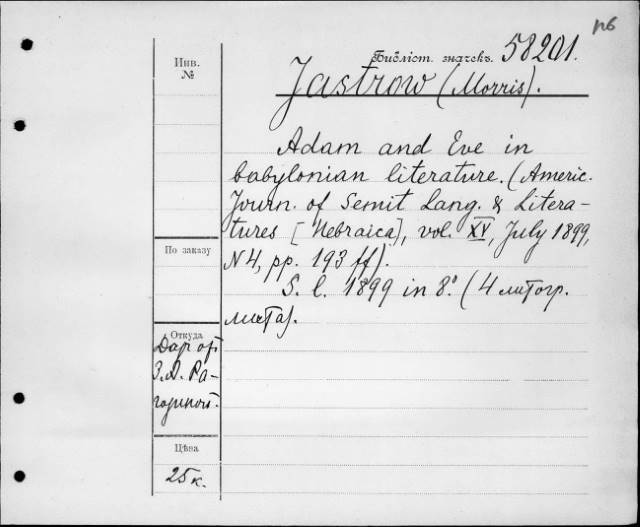 пб
Инв.
№
Библіот. значекъ. 58201.
Jastrow (Morris).
Adam and Eve in
babylonian literature. (Americ.
Journ. of Semit Lang. & Litera-
tures [Hebraica], vol. XV, July 1899,
N4, pp. 193 ff).
S. l. 1899 in 8º. (4 литогр.
листа).
По заказу
Откуда
Даръ от
З.А. Ра-
гозиной.
Цѣна
25 к.